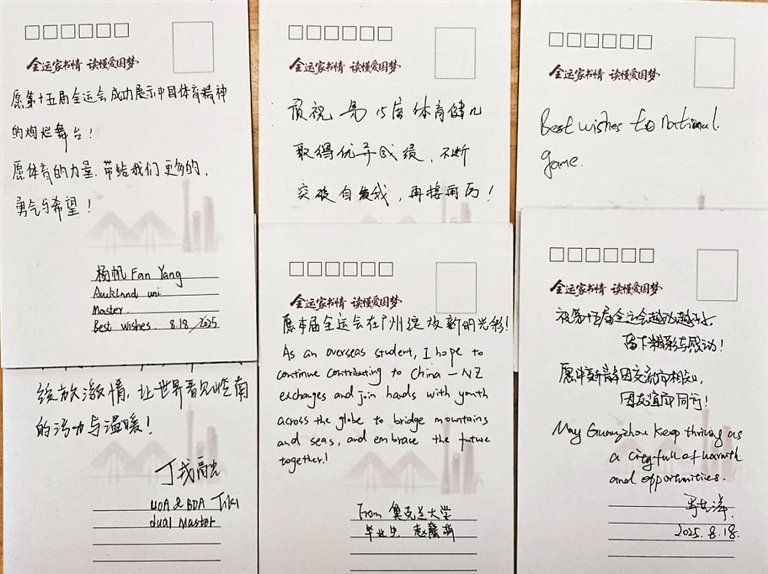 全运家书情 读懂爱国梦
愿第十五届全运会成功展示中国体育精神
的绚烂舞台!
愿体育的力量,带给我们更多的,
勇气与希望!
杨帆 Fan Yang
Auckland uni
Master.
Best wishes. 8.18/2025
全运家书情 读懂爱国梦
预祝 15届体育健儿
取得优异成绩,不断
突破自我,再接再厉!
全运家书情 读懂爱国梦
Best wishes to national
game.
绽放激情,让世界看见岭南
的活力与温暖!
UOA & BDA Tiki
dual Master
全运家书情 读懂爱国梦
愿本届全运会在广州绽放新的光彩!
As an overseas student, I hope to
continue contributing to China - NZ
exchanges and join hands with youth
across the globe to bridge mountains
and seas, and embrace the future
together!
From 奥克兰大学
毕业生 赵
全运家书情 读懂爱国梦
祝第十五届全运会越办越好,
留下精彩与感动!
愿中新两国因交流而相知,
因友谊而同行!
May Guangzhou keep thriving as
a city full of warmth
and opportunities.
2025.8.18.